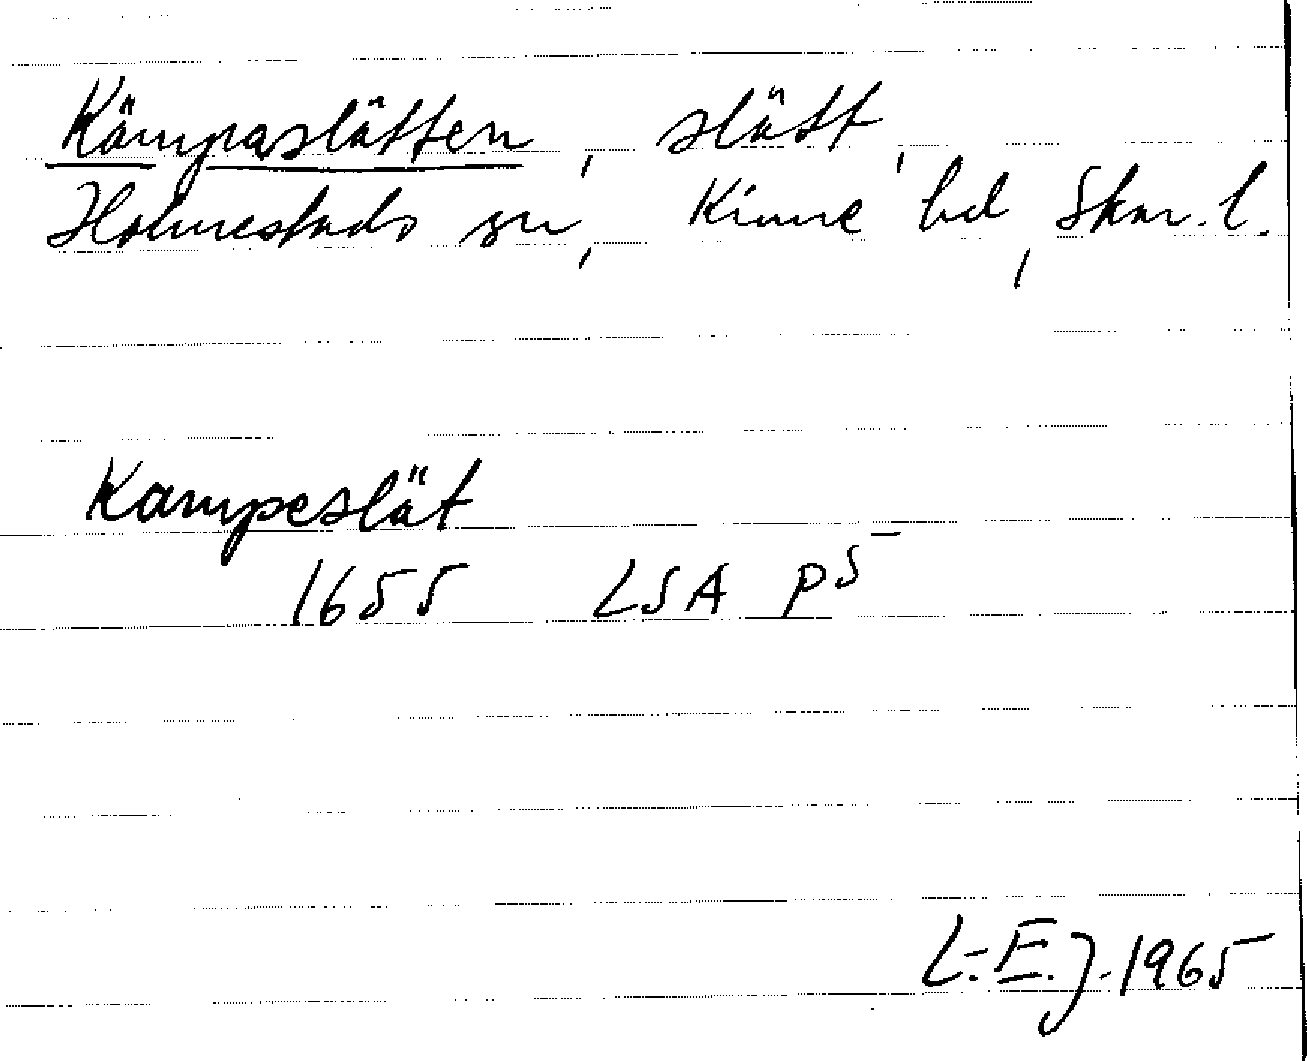 Kämpaslätten, slätt,
Holmestads sn, Kinne hd, Skar. l.
Kampeslät
1655 LSA P5
L-E. J. 1965